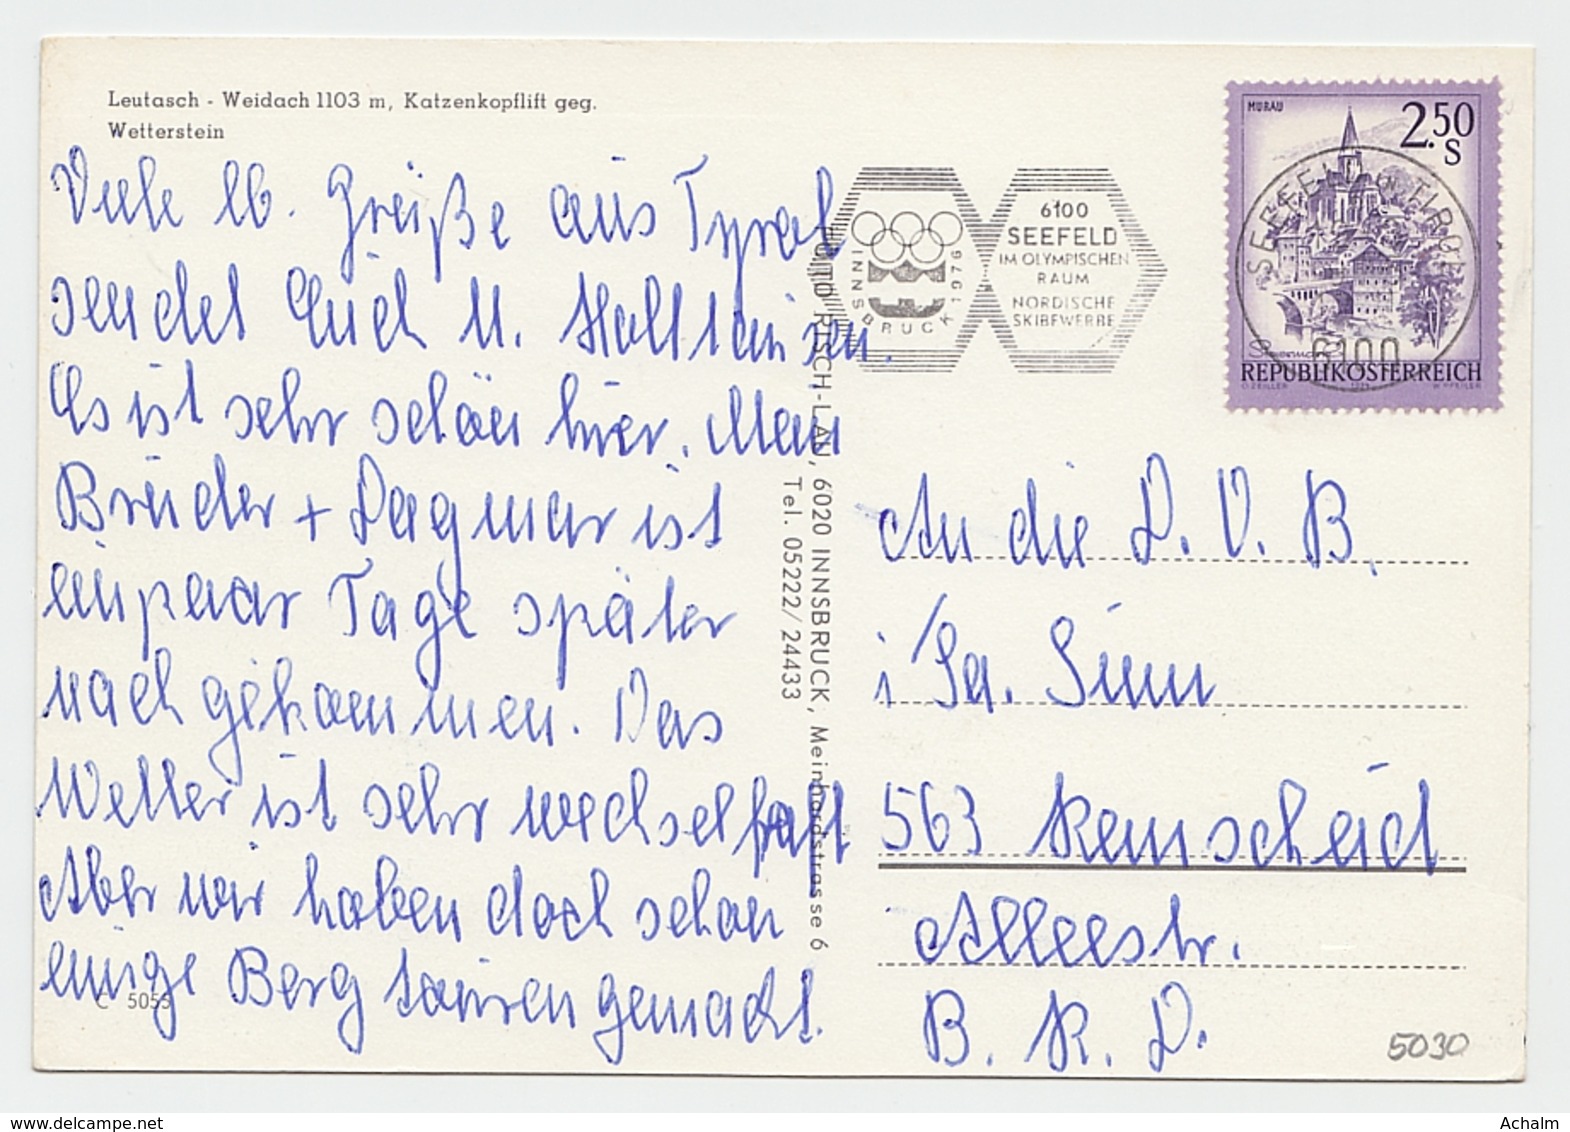 Leutasch - Weidach 1103 m, Katzenkopflift geg.
Wetterstein
Viele lb. Grüße aus Tyrol
sendet Euch U.
Es ist sehr schön hier. Mein
Bruder + Dagmar ist
ein paar Tage später
nach gekommen. Das
Wetter ist sehr wechselhaft
Aber wir haben doch schon
einige Berg touren gemacht.
C 5055
RISCH-LAU, 6020 INNSBRUCK, Meinhardstrasse 6
Tel. 05222/24433
INNSBRUCK 1976
6100
SEEFELD
IM OLYMPISCHEN
RAUM
NORDISCHE
SKIBEWERBE
MURAU
2.50
S
SEEFELD TIROL
6100
REPUBLIK ÖSTERREICH
An die D. V. B.
i Fa. Sinn
563 Remscheid
Alleestr.
B. R. D.
5030
www.delcampe.net
Achalm